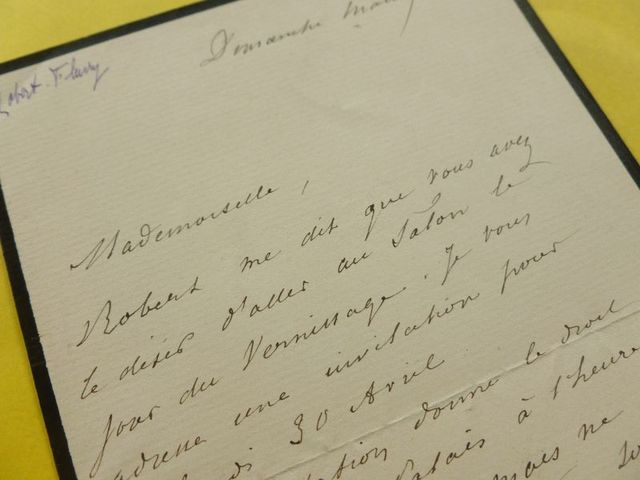 Robert-Fleury
Dimanche matin
Mademoiselle,
Robert me dit que vous avez
le désir d'aller au Salon le
jour du Vernissage. Je vous
adresse une invitation pour
30 Avril.
donne le droit
à l'heure
mais ne